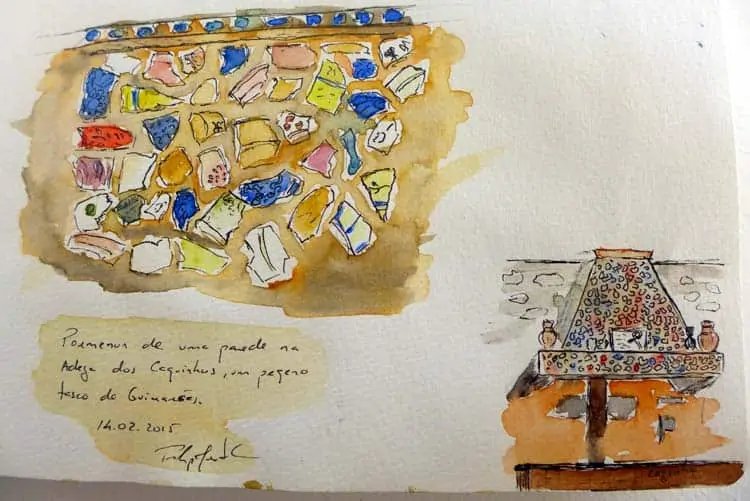 Pormenor de uma parede na
Adega dos Caquinhos, um pequeno
tasco de Guimarães.
14.02.2015